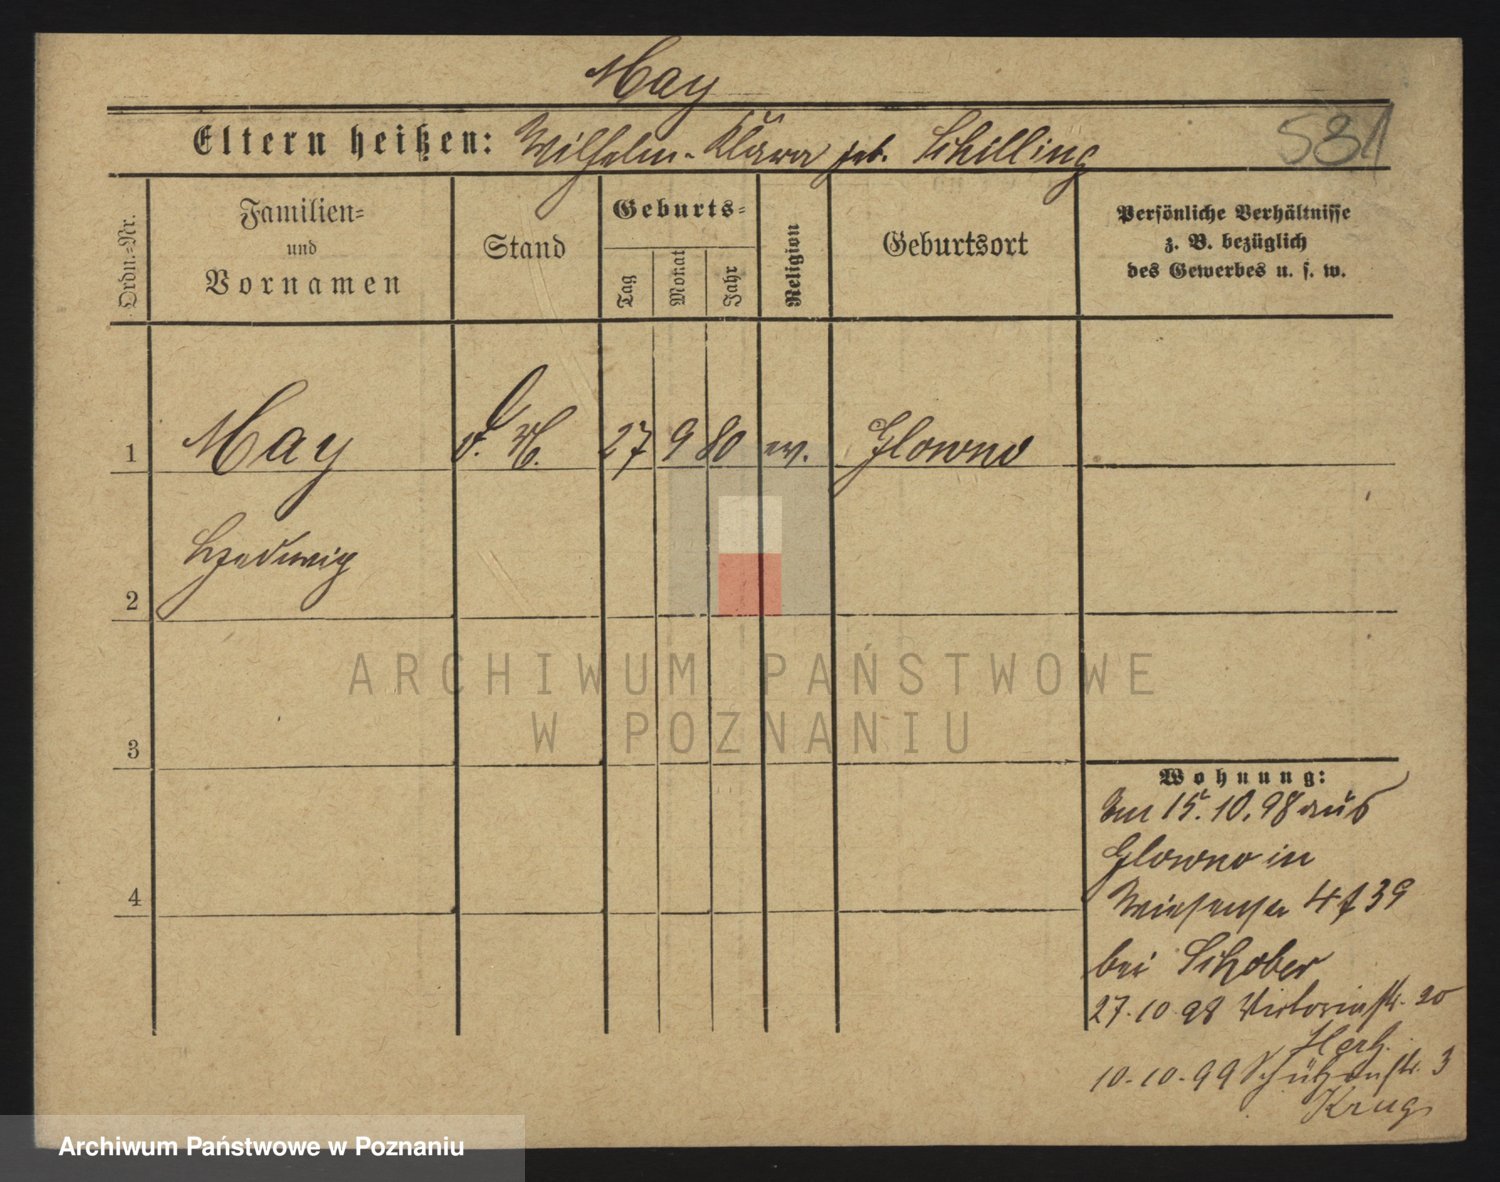 May
Eltern heißen: Wilhelm - Klara geb. Schilling
581
Ordn.-Nr.
Familien-
und
Vornamen
Stand
Geburts-
Tag
Monat
Jahr
Religion
Geburtsort
Persönliche Verhältnisse
z. B. bezüglich
des Gewerbes u. s. w.
1 May 27 9 80 ev. Glowno
Hedwig
2
3
4
Wohnung:
Am 15.10.98 aus
Glowno in
4 39
bei Schober
27.10.98 Victoriastr. 20
10.10.99 Schützenstr. 3
Krug
ARCHIWUM PAŃSTWOWE
W POZNANIU
Archiwum Państwowe w Poznaniu